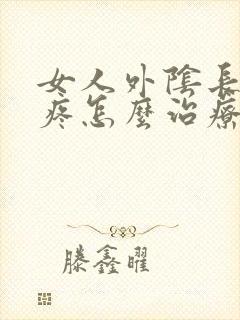 女人外陰長
疼怎麼治療
滕鑫曜